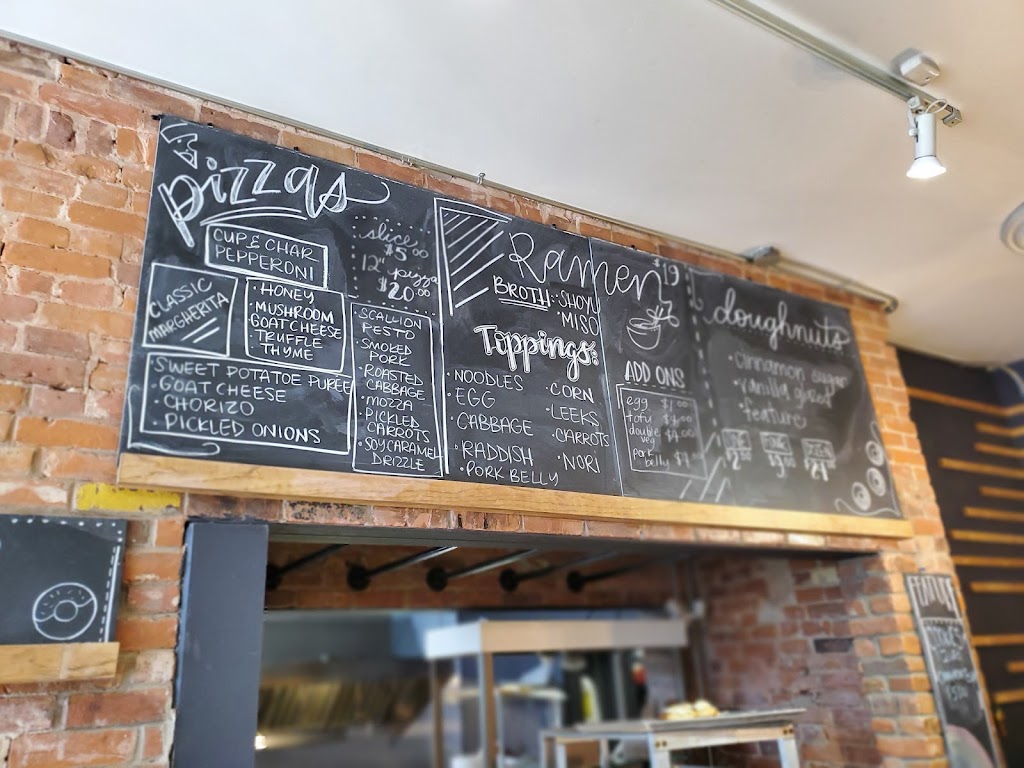 pizzas
CUP & CHAR
PEPPERONI
CLASSIC
MARGHERITA
• HONEY
• MUSHROOM
GOAT CHEESE
• TRUFFLE
THYME
• SWEET POTATOE PUREE
• GOAT CHEESE
• CHORIZO
• PICKLED ONIONS
slice
$5.00
12" pizza
$20.00
• SCALLION
PESTO
• SMOKED
PORK
• ROASTED
CABBAGE
• MOZZA
• PICKLED
CARROTS
• SOY CARAMEL
DRIZZLE
Ramen $19
BROTH: SHOYU
• MISO
Toppings:
• NOODLES
• EGG
• CABBAGE
• RADDISH
• PORK BELLY
• CORN
• LEEKS
• CARROTS
• NORI
ADD ONS
egg
tofu
double
veg
pork
belly
doughnuts
• cinnamon sugar
• vanilla glazed
• feature
FEATURE